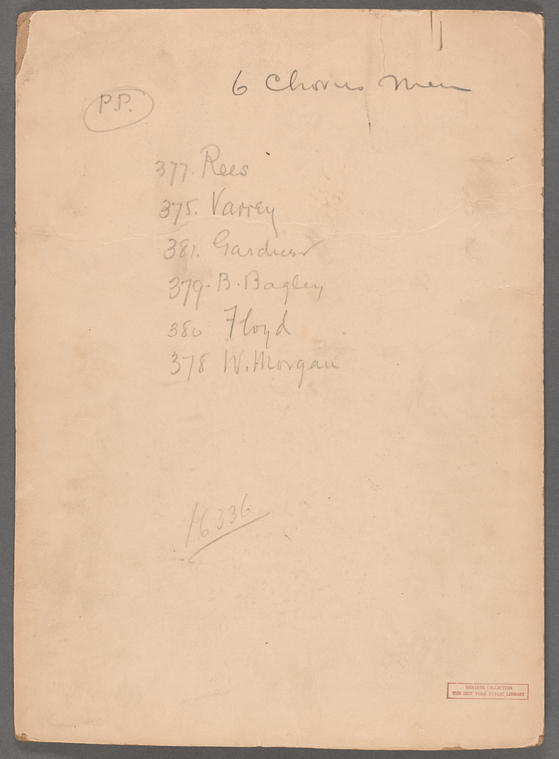 6 Chorus Men
P.P.
377. Rees
375. Varrey
381. Gardner
379. B. Bagley
380 Floyd
378 W. Morgan
16336
THEATRE COLLECTION
THE NEW YORK PUBLIC LIBRARY